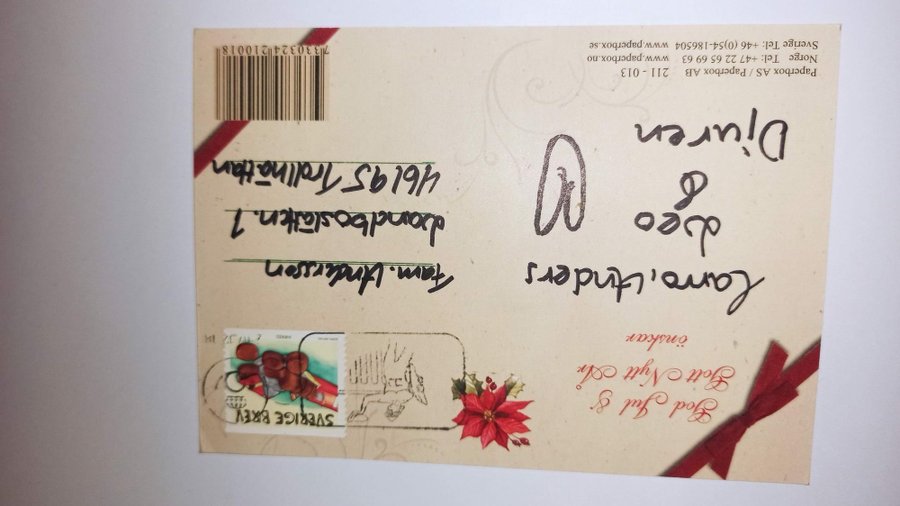 God Jul &
Gott Nytt År
önskar
SVERIGE BREV
Carro, Anders
Leo
&
Djuren
Fam. Andersson
Landboslätten. 1
46195 Trollhättan
Paperbox AS / Paperbox AB 211 - 013
Norge Tel: +47 22 65 69 63 www.paperbox.no
Sverige Tel: +46 (0)54-186504 www.paperbox.se
7330324210018